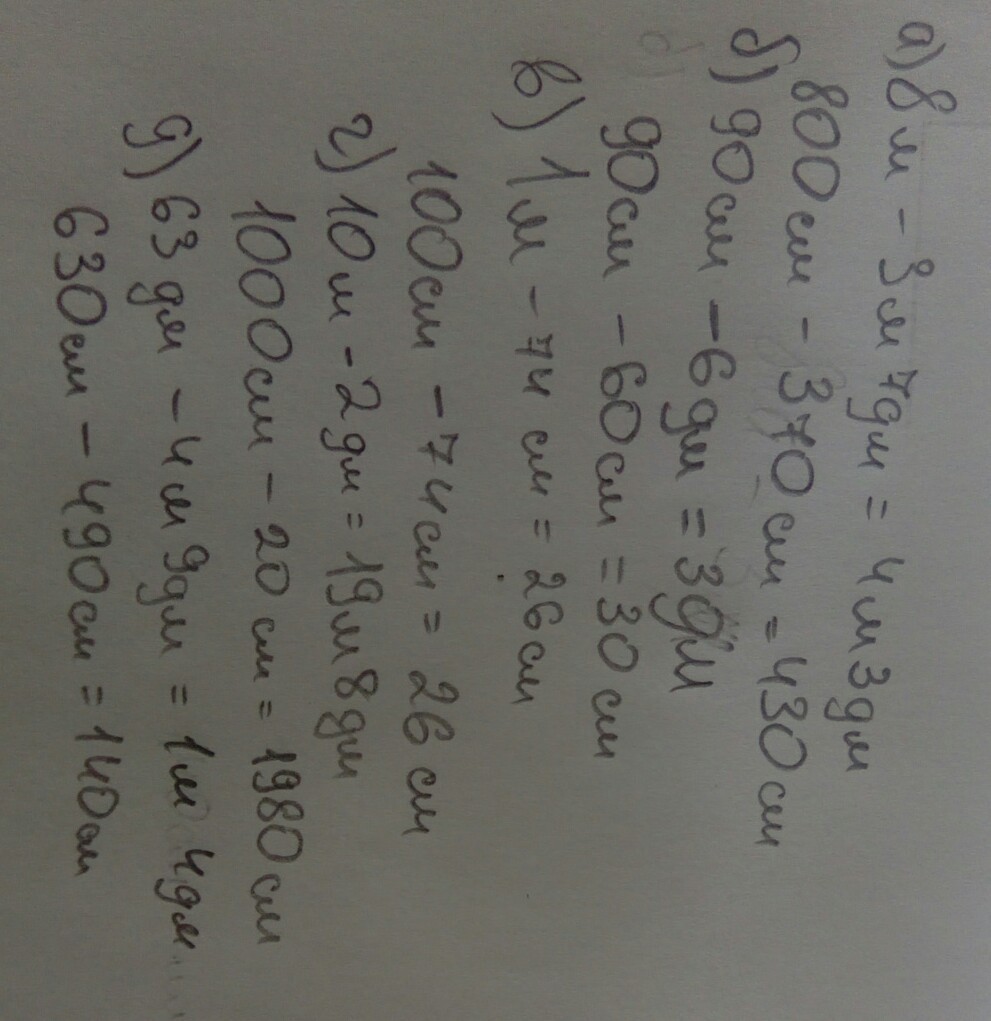 а) 8 м - 3 м 7 дм = 4 м 3 дм
800 см - 370 см = 430 см
б) 90 см - 6 дм = 3 дм
90 см - 60 см = 30 см
в) 1 м - 74 см = 26 см
100 см - 74 см = 26 см
г) 10 м - 2 дм = 19 м 8 дм
1000 см - 20 см = 1980 см
д) 63 дм - 4 м 9 дм = 1 м 4 дм
630 см - 490 см = 140 см